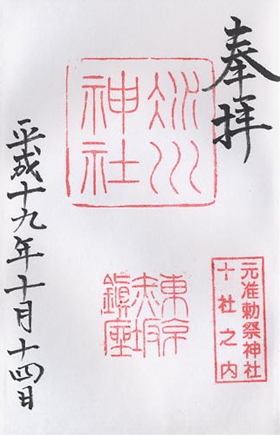 奉拝
氷川
神社
元准勅祭神社
十社之内
東京
赤坂
鎮座
平成十九年十月十四日